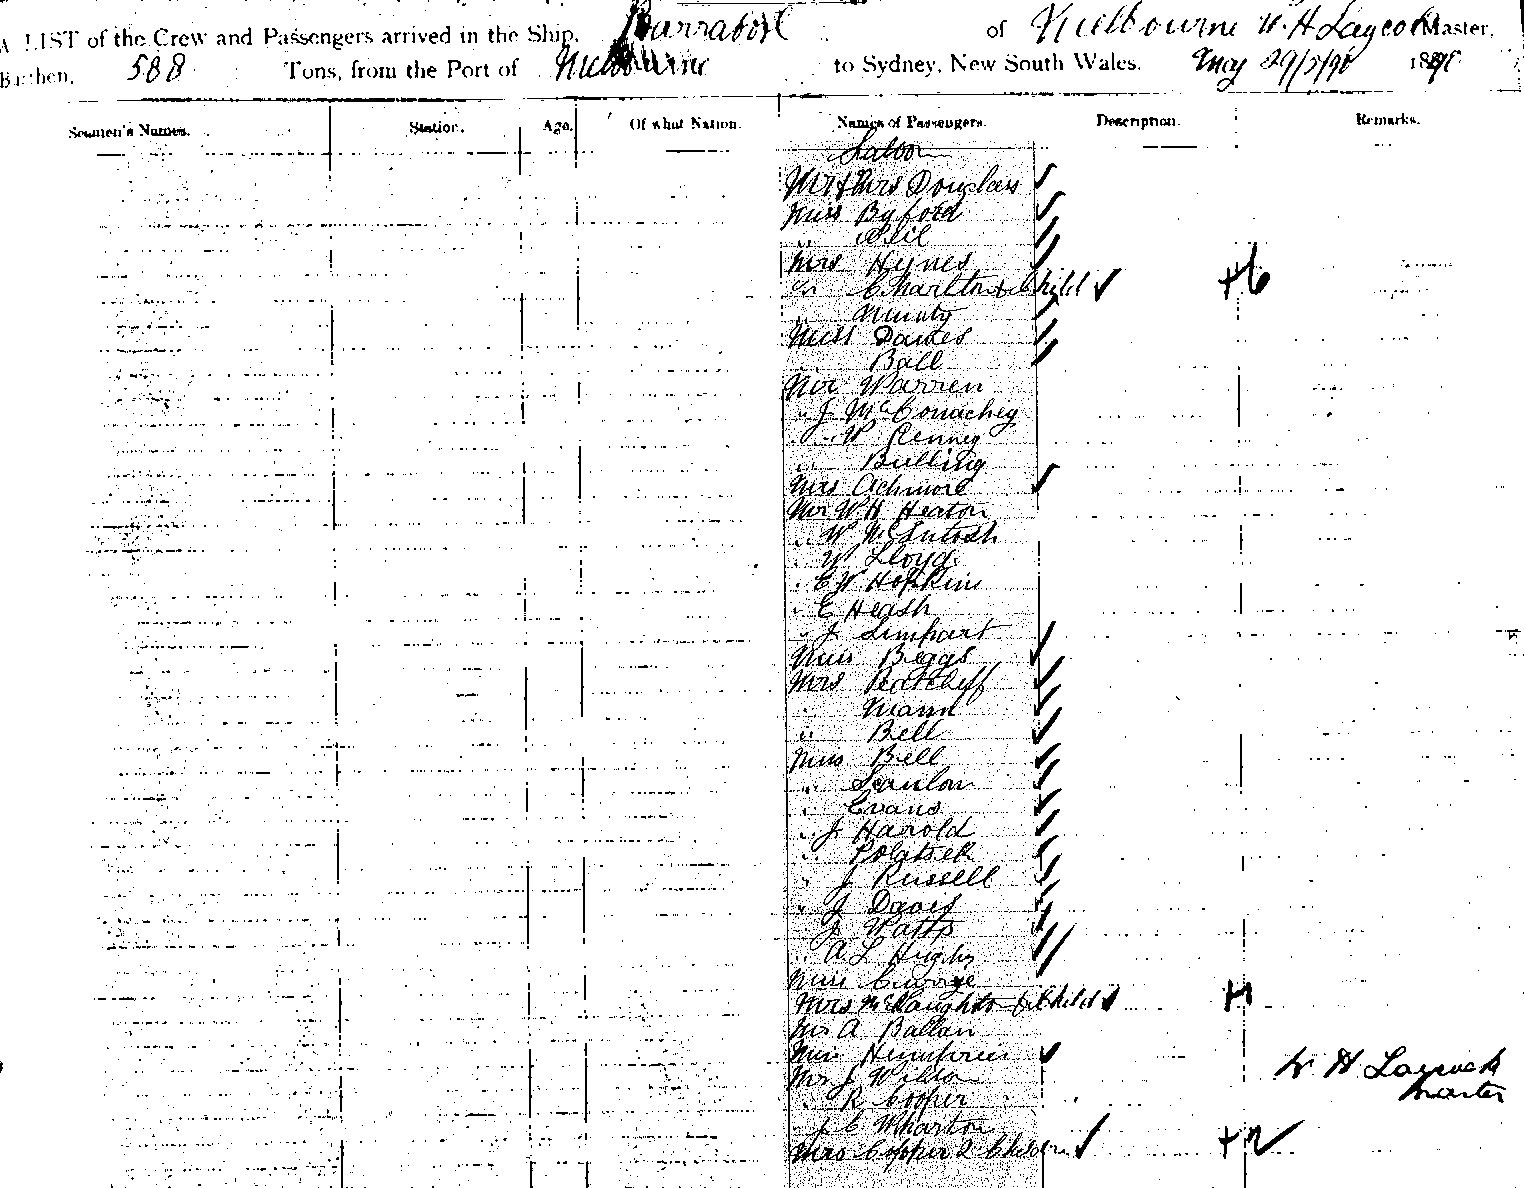 A LIST of the Crew and Passengers arrived in the Ship, Barrabool of Melbourne W. H Laycock Master,
Burthen, 588 Tons, from the Port of Melbourne to Sydney, New South Wales. 29/5/90
Seamen's Names. Station. Age. Of what Nation. Names of Passengers. Description. Remarks.
Saloon
Mr & Mrs Douglass
Miss Byford
" 
Mrs Hynes
" Charlton & Child +6
"
Miss Dawes
Ball
Mr Warren
" J McConachey
" W Kenney
" Bulling
Mrs Achmore
Mr W H Heaton
" W McIntosh
" W Lloyd
" E W Hopkins
" E Heash
" J Limpart
Miss Beggs
Mrs Ratcliff
" Mann
" Bell
Miss Bell
" Scanlon
" Evans
" J Harold
" Polatsek
" J Russell
" J Davis
J Watts
" A L Hughs
Miss
Mrs McNaughton & Child +1
Mr A Ballan
Miss Humphries
Mr J Wilson
" R Cooper
" J C Wharton
Mrs Cooper 2 Children +2
W H Laycock
Master